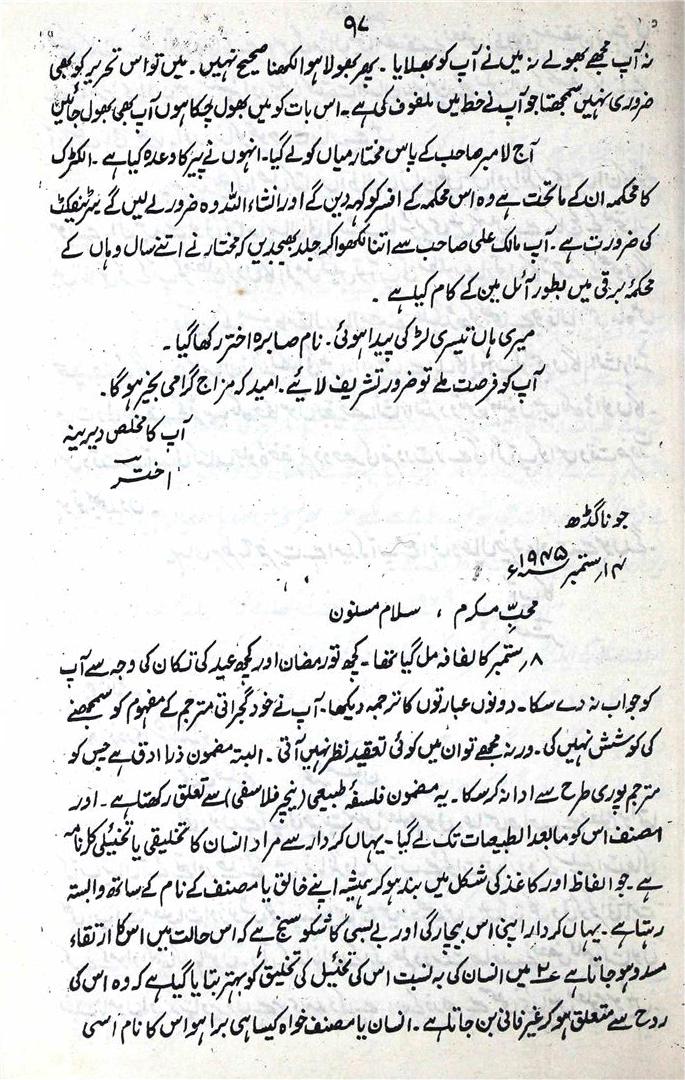 ۹۷
نہ آپ مجھے بھولے نہ میں نے آپ کو بھلایا ۔ پھر بھولا ہوا لکھنا صحیح نہیں ۔ میں تو اس تحریر کو بھی
ضروری نہیں سمجھتا جو آپ نے خط میں ملفوف کی ہے ۔ اس بات کو میں بھول چکا ہوں آپ بھی بھول جائیں
آج لامبر صاحب کے پاس مختار میاں کو لے گیا ۔ انہوں نے پیر کا وعدہ کیا ہے ۔ الکٹرک
کا محکمہ ان کے ماتحت ہے وہ اس محکمہ کے افسر کو کہہ دیں گے اور انشاء اللہ وہ ضرور لے لیں گے سرٹیفیکٹ
کی ضرورت ہے ۔ آپ مالک علی صاحب سے اتنا لکھوا کر جلد بھیجدیں کہ مختار نے اتنے سال وہاں کے
محکمۂ برقی میں بطور آئل مین کے کام کیا ہے ۔
میری ہاں تیسری لڑکی پیدا ہوئی ۔ نام صابرہ اختر رکھا گیا ۔
آپ کو فرصت ملے تو ضرور تشریف لائیے ۔ امید کہ مزاج گرامی بخیر ہو گا ۔
آپ کا مخلص دیرینہ
اختر
جونا گڈھ
۱۴ ستمبر ۱۹۴۵ء
محبِّ مکرم ، سلام مسنون
۸ ستمبر کا لفافہ مل گیا تھا ۔ کچھ تو رمضان اور کچھ عید کی تکان کی وجہ سے آپ
کو جواب نہ دے سکا ۔ دونوں عبارتوں کا ترجمہ دیکھا ۔ آپ نے خود گجراتی مترجم کے مفہوم کو سمجھنے
کی کوشش نہیں کی ۔ ورنہ مجھے تو ان میں کوئی تعقید نظر نہیں آتی ۔ البتہ مضمون ذرا ادق ہے جس کو
مترجم پوری طرح سے ادا نہ کر سکا ۔ یہ مضمون فلسفۂ طبیعی (نیچر فلاسفی) سے تعلق رکھتا ہے ۔ اور
مصنف اس کو مابعد الطبیعات تک لے گیا ۔ یہاں کردار سے مراد انسان کا تخلیقی یا تخئیلی کارنامہ
ہے ۔ جو الفاظ اور کاغذ کی شکل میں بند ہو کر ہمیشہ اپنے خالق یا مصنف کے نام کے ساتھ وابستہ
رہتا ہے ۔ یہاں کردار اپنی اس بیچارگی اور بے بسی کا شکوہ سنج ہے کہ اس حالت میں اس کا ارتقاء
مسدود ہو جاتا ہے ۲ میں انسان کی بہ نسبت اس کی تخئیل کی تخلیق کو بہتر بتایا گیا ہے کہ وہ اس کی
روح سے متعلق ہو کر غیر فانی بن جاتا ہے ۔ انسان یا مصنف خواہ کیسا ہی برا ہو اس کا نام اسی